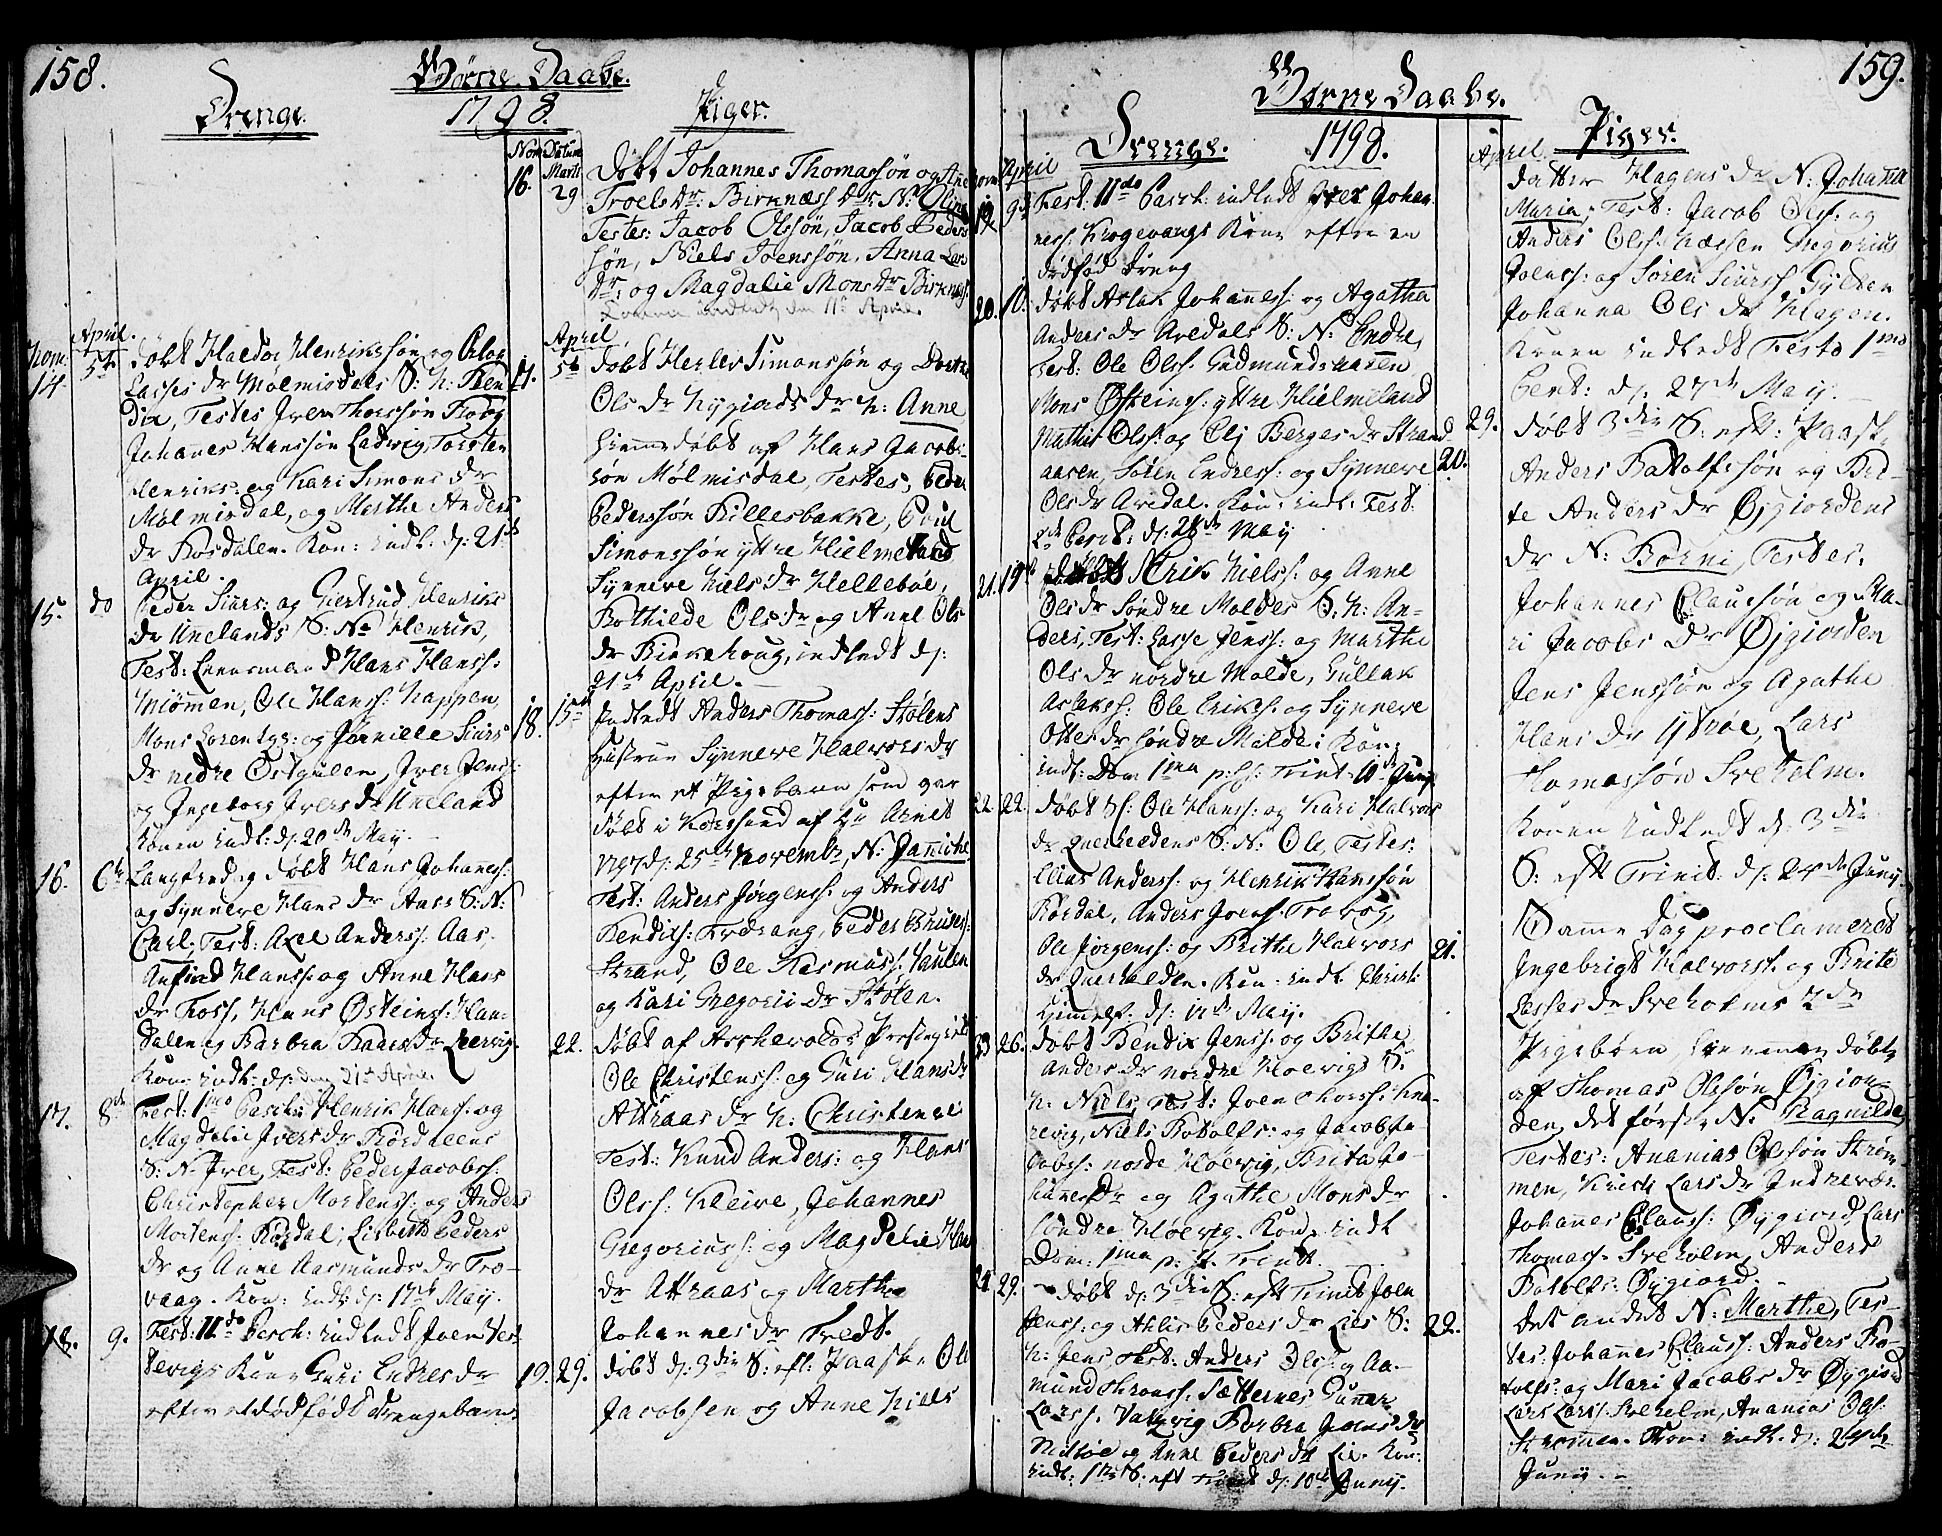 158.
Børne Daabe.
1798.
Drenge.
Piger.
Nom: Datum
Marti
16. 29
Døbt Johannes Thomassøn og Ane
Troels Dr: Birknæss Dr: N: Oline
Testes: Jacob Olssøn, Jacob Peders
søn, Niels Joenssøn, Anna Lars
Dr, og Magdalie Mons Dr Birknæss.
Konen indledt den 11te April.
Nom: April.
14. 5te
Døbt Haldor Henrikssøn og
Lasses Dr Mølmisdals S: N: Ben
dix, Testes Iver Thorssøn
Johannes Hanssøn Ladvig, Torsten
Henriks: og Kari Simons Dr
Mølmisdal, og Marthe Anders
Dr Rosdalen. Kon: indl: d: 21de
April.
15. do
Peder Siurs: og Giertrud Henriks
Dr Unelands S: N: Henrik,
Test: Lensmand Hans Hanss:
Miømen, Ole Hanss: Nappen,
Mons Lorentzs: og Pernille Siurs
Dr nedre Østgulen, Iver Jens:
og Ingeborg Ivers Dr Uneland
Konen indl: d: 20de May.
16. 6te
Langfredag døbt Hans Johanes:
og Synneve Hans Dr Aass S: N:
Carl, Test: Axel Anders: Aas.
Anfind Hanss: og Anne Hans
Dr Foss, Hans Østeins: Han-
dalen og Barbra Dr Leervig.
Kon: indl: d: den 21de April
17. 8de
Fest: 1mo Pasch: Henrik Hans: og
Magdalie Ivers Dr
S: N: Iver, Test: Peder Jacobss:
Christopher Mortenss: og Anders
Mortens: Kørdal, Lisbeth Peders
Dr og Anne Aasmunds Dr Tro-
vaag. Kon: indl: d: 17de May.
18. 9.
Fest: IIdo Pasch: indledt Joen
Kone Guri Endres Dr
efter et dødfødt Drengebarn.
April
17. 5te
Døbt Herlev Simonssøn og Dorte
Ols Dr Nygiads Dr N: Anne
hiemmedøbt af Hans Jacobs
søn Mølmisdal, Testes, Peder
Pederssøn Killesbakke, Poul
Simonssøn yttre Hielmeland
Synneve Niels Dr Hellebøe,
Bothilde Ols Dr og Anne Ols
Dr Birkehoug, indledt d:
21de April.
18. 15de
Indledt Anders Thomass: Stølens
Hustrue Synneve Halvors Dr
efter et Pigebarn som var
døbt i af Hr Arnet
1797 d: 25de Novembr, N: Janniche
Test: Anders Jørgenss: og Anders
Bendixs: Peder
Strand, Ole Rasmuss:
og Kari Gregorii Dr Stølen.
22.
Døbt af
Ole Christenss: og Guri Hans Dr
Attraas Dr N: Christense
Test: Knud Anders: og Hans
Olss: Kleive, Johannes
Gregoriuss: og Magdelie Han
Dr Attraas og Marthe
Johannes Dr Tredt.
19. 29.
døbt d: 3die S: eft: Paaske Ole
Jacobsen og Anne Niels
159.
Børne Daabe.
1798.
Drenge.
Piger.
April
19. 9de
Fest: IIdo Pasch: indledt Johan
ness: Krogevangs Kone efter en
dødfød Dreng
20. 10.
døbt Aslak Johaness: og Agatha
Anders Dr Aredals S: N: Endre,
Test: Ole Olss: Gudmundsnæssen
Mons Østeins: yttre Hielmeland
Mathis Olss: og Eli Berges Dr Strand
aasen, Søren Endress: og Synneve
Ols Dr Aredal. Kon: indl: Fest:
2de Pent: d: 28de May
21. 19de
Døbt Erik Nielss: og Anne
Ols Dr Søndre Moldes S: N: An-
ders, Test: Lasse Jenss: og Marthe
Ols Dr nordre Molde, Gullak
Aslaks: Ole Eriks: og Synneve
Ottes Dr søndre Molde; Kon:
indl: Dom: 1ma p: f: Trint: 10de Juny
22. 22.
døbt Ole Hanss: og Kari Halvors
Dr Qverheldens S: N: Ole, Testes:
Elias Anderss: og Henrik Hanssøn
Kørdal, Anders Joens: Trovog,
Ole Jørgenss: og Brithe Halvors
Dr Qverhelden. Kon: indl: Christi
Himmelf: d: 17de May.
23 26.
døbt Bendix Jenss: og Brithe
Anders Dr nordre Høevigs S:
N: Niels, Test: Joen Thorss:
Niels Botolfs: og Jacob Ja
cobs: nordre Høevig, Brita Jo-
hannes Dr og Agathe Mons Dr
søndre Høevig. Kon: indl
Dom: 1ma p: f: Trint.
24 29.
døbt d: 3die S: eft Joen
Jenss: og Ahlis Peders Dr Lies S:
N: Jens Test: Anders Olss: og Aa-
mund Gunner
Larss: Barbra Jens Dr
og Anne Peders Dr Lie. Kon:
indl: 1ste S: eft Trinit d: 10de Juny.
April.
datter Hagens Dr N: Johanna
Maria; Test: Jacob Olss: og
Anders Olss: Næssen Gregorius
Joenss: og Søren Siurss: Gylden
Johanna Ols Dr Hagen.
Konen indledt Festo 1mo
Pent: d: 27de May.
20. 29.
døbt 3die S: eft: Paask.
Anders Botolfssøn og Bri-
te Anders Dr Øygiordens
Dr N: Børni, Testes.
Johannes Claussøn og Ma-
ri Jacobs Dr Øygiorden
Jens Jenssøn og Agathe
Hans Dr Ytrøe, Lars
Thomassøn Sveholm.
Konen indledt d: 3die
S: eft Trinit: d: 24de Juny
21.
Samme Dag proclameret
Ingebrigt Halvors: og Brite
Lasses Dr Sveholms 2de
Pigebørn, hiemmedøbt
af Thomas Olssøn Øygior-
den, det første N: Ragnilde
Testes: Ananias Olssøn Strøm-
men, Lars Dr Indrevær.
Johannes Clauss: Øygiord, Lars
Thomass: Sveholm, Anders
Botolfs: Øygiord.
22.
Det andet N: Marthe, Tes-
tes, Johannes Clauss: Anders Bo-
tolfs: og Mari Jacobs Dr Øygiord
Lars Larss: Sveholm, Ananias Ols:
Strømmen. Kon: indl: d: 24de
Juny.